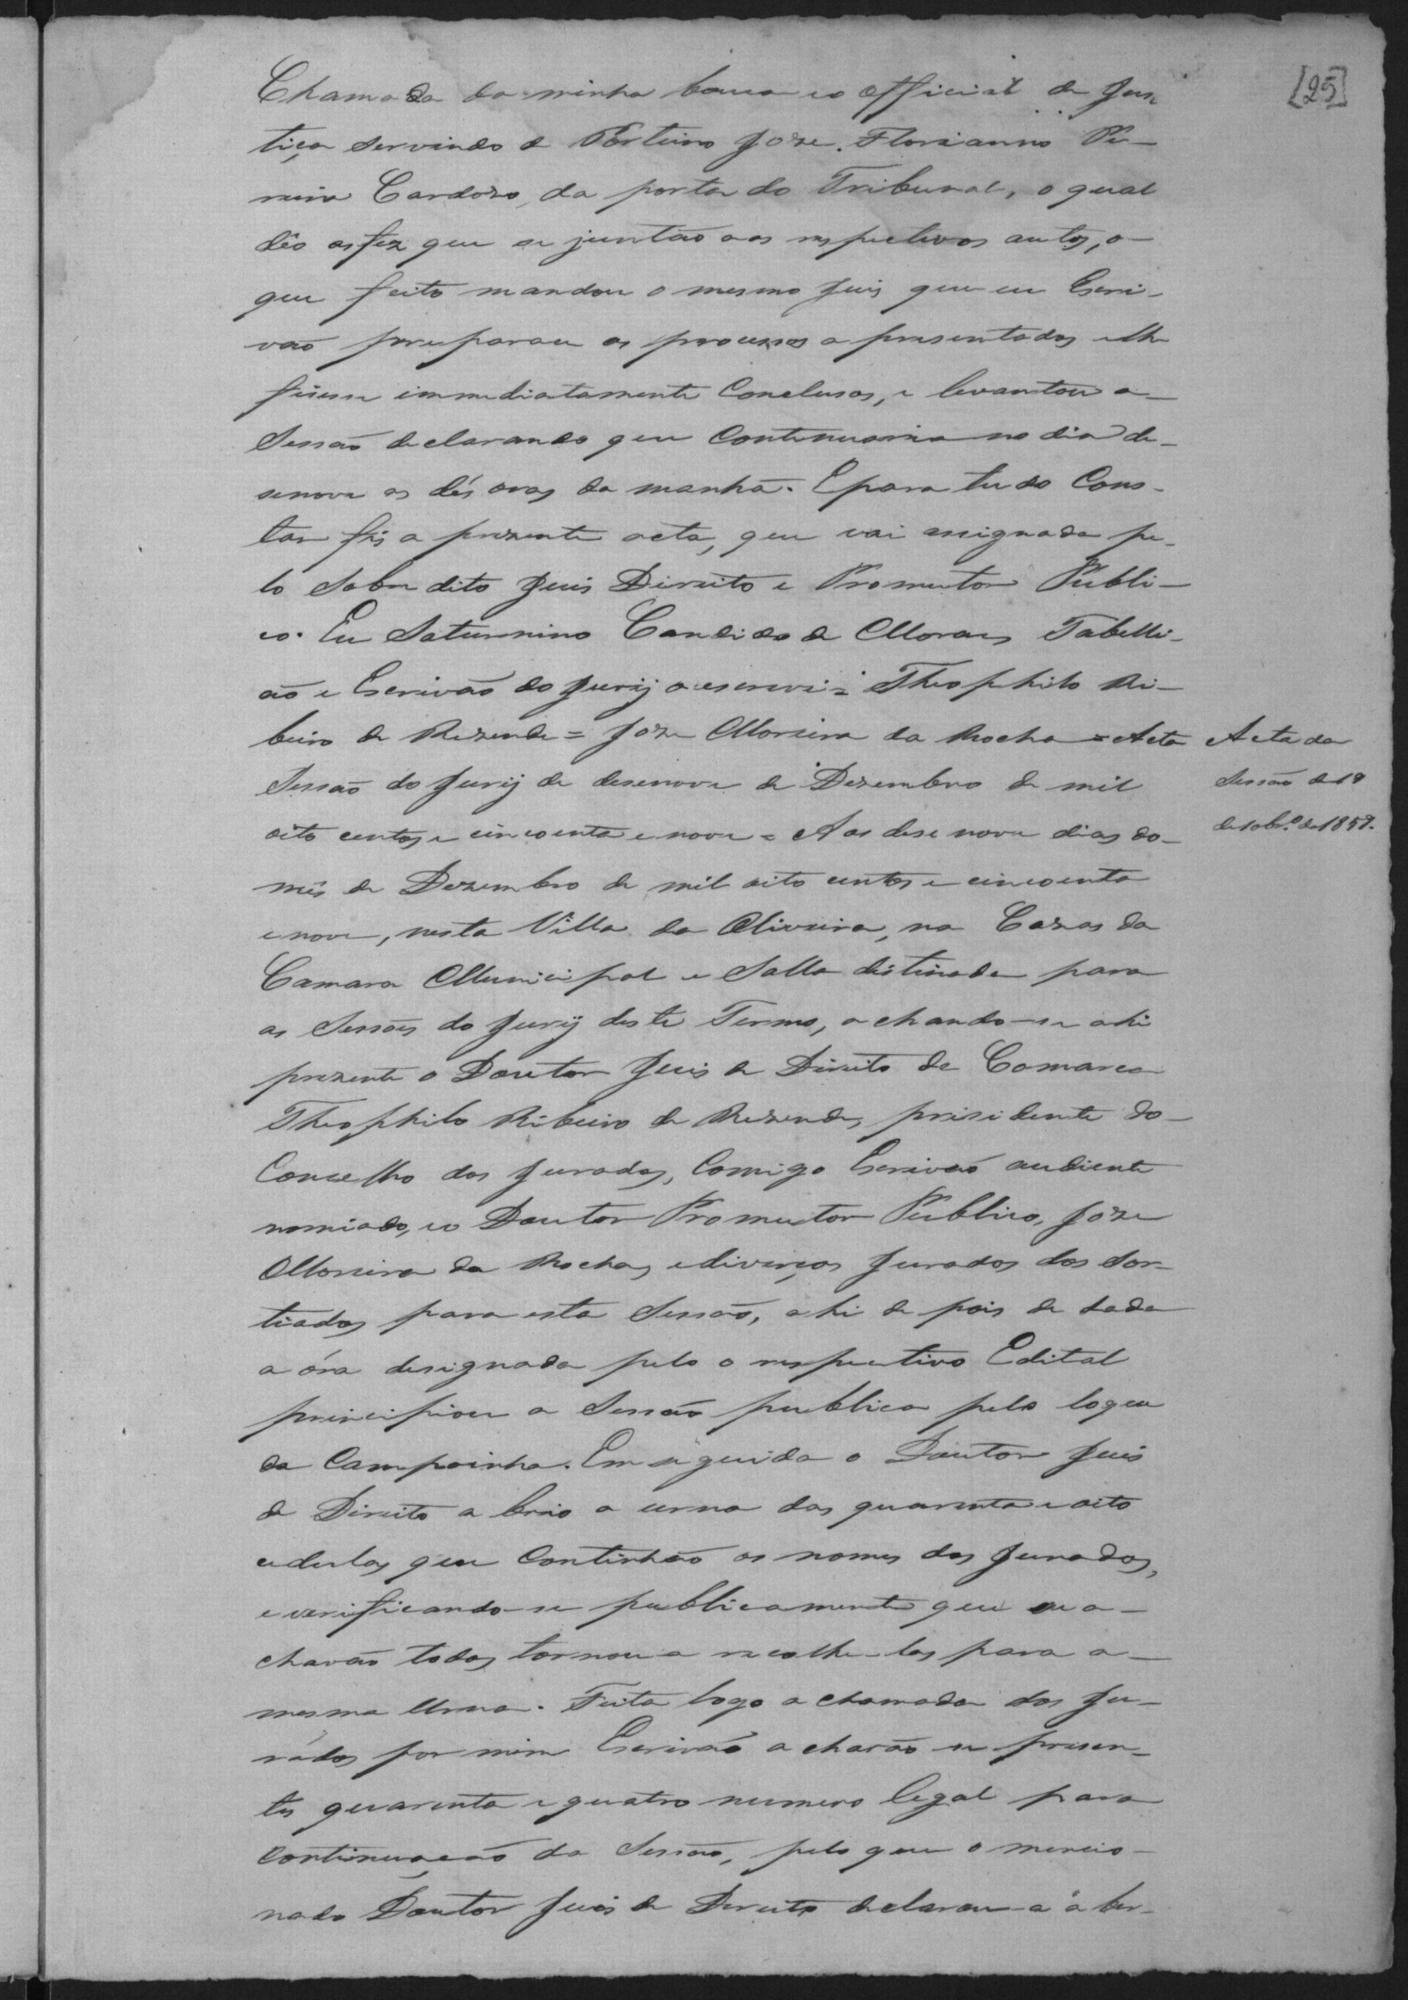 [25]
Chamada da minha banca e o official de Jus
tiça servindo de Porteiro Joze Florianno Pe-
reira Cardozo, da porta do Tribunal, o qual
dêo as féz que se juntão aos respectivos autos, o
que feito mandou o mesmo Juis que eu Escri-
vão preparace os processos apresentados e lhe
fisesse immediatamente Conclusos, e levantou a
Sessão declarando que Continuaria no dia de-
senove as dés oras da manhã. E para tudo Cons-
tar fis a prezente acta, que vai assignada pe-
lo Sobre dito Juis Direito e Promutor Publi-
co. Eu Saturnino Candido de Moraes Tabelli-
ão e Escrivão do Jurij o escrevi = Theophilo Ri-
beiro de Rezende = Joze Moreira da Rocha = Acta
Sessão do Jurij de desenove de Dezembro de mil
oito centos e cincoenta e nove = Aos desenove dias do
mês de Dezembro de mil oito centos e cincoenta
e nove, nesta Villa da Oliveira, na Cazas da
Camara Municipal e Salla distinada para
as Sessões do Jurij deste Termo, achando-se ahi
prezente o Doutor Juis de Direito da Comarca
Theophilo Ribeiro de Rezende, prisidente do
Concelho dos Jurados, Comigo Escrivão audiente
nomiado, e o Doutor Promutor Publico, Joze
Moreira da Rocha, e diverços Jurados dos Sor-
tiados para esta Sessão, ahi de pois de dada
a óra designada pelo o respectivo Edital
principiou a Sessão publica pelo toque
da Campainha. Em seguida o Doutor Juis
de Direito abrio a urna das quarenta e oito
cedulas que Continhão os nomes dos Jurados,
e verificando-se publicamente que se a-
chavão todas tornou a recolhe-las para a
mesma Urna. Feita logo a chamada dos Ju-
rados por mim Escrivão acharão se presen-
tes quarenta e quatro numero legal para
continuação da Sessão, pelo que o mencio-
nado Doutor Juis de Direito declarou-a aber-
Acta da
Sessão de 19
de 10br.º de 1859.